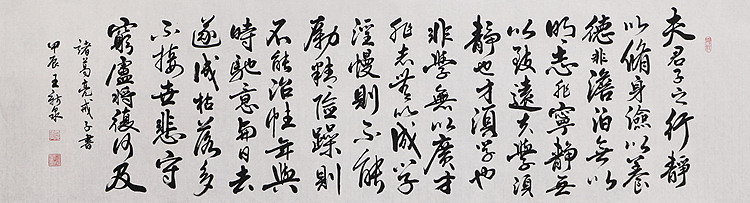 夫君子之行靜
以脩身儉以養
德非澹泊無以
明志非寧靜無
以致遠夫學須
靜也才須學也
非學無以廣才
非志無以成學
淫慢則不能
勵精險躁則
不能治性年與
時馳意與日去
遂成枯落多
不接世悲守
窮廬將復何及
諸葛亮戒子書
甲辰王